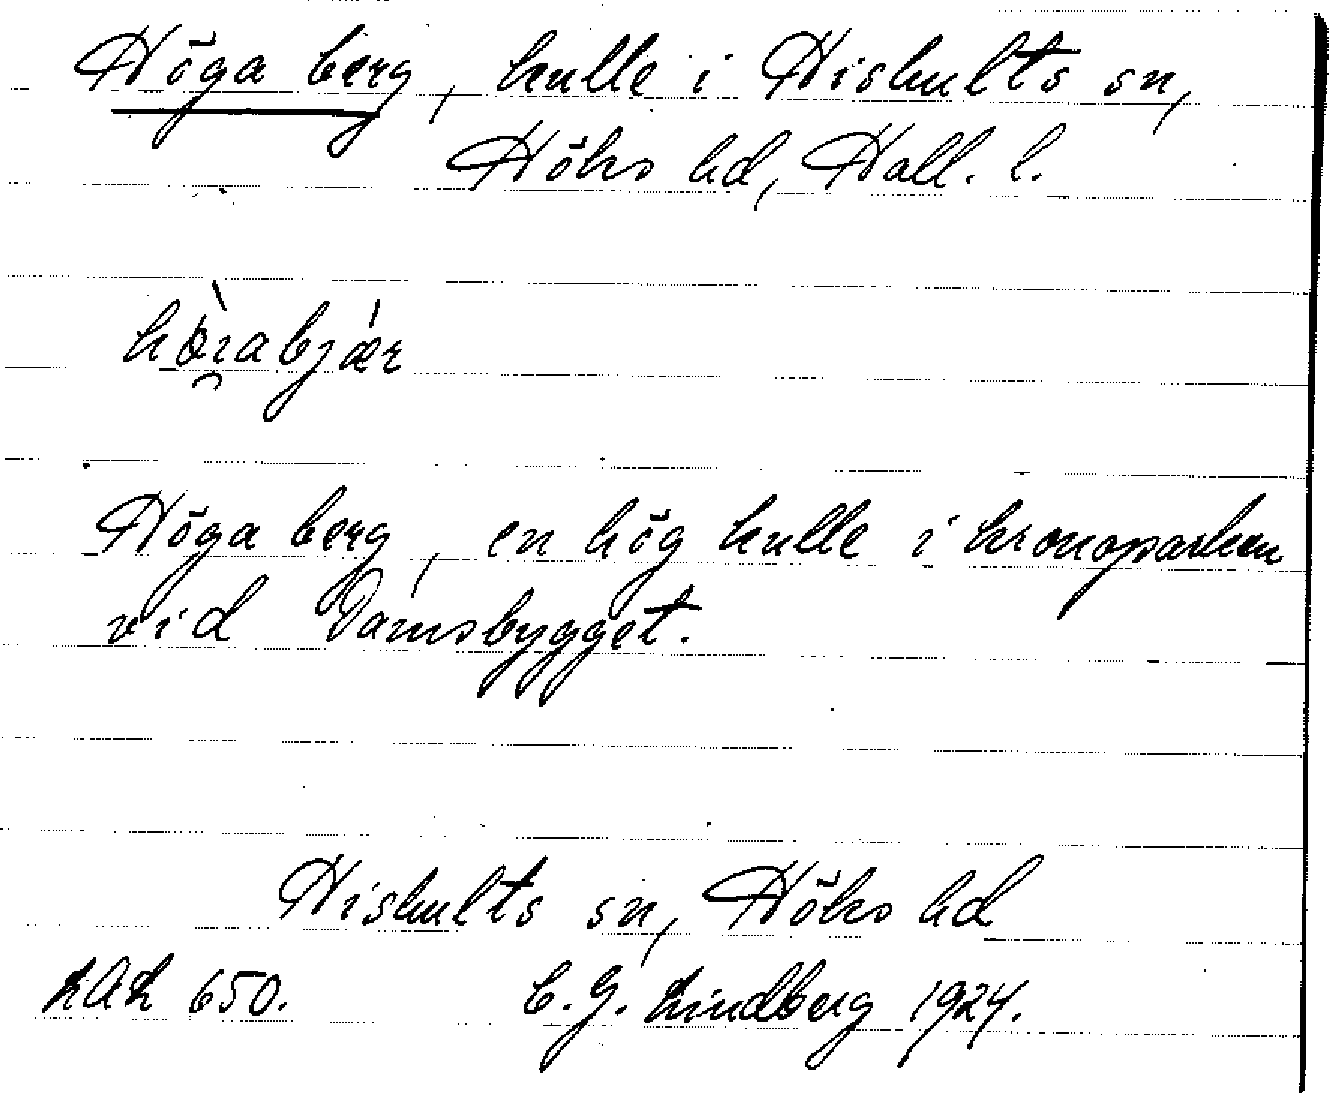 Höga berg, kulle i Hishults sn,
Höks hd, Hall. l.
Höga berg, en hög kulle i kronoparken
vid Damsbygget.
Hishults sn, Höks hd
LAL 650. C.G. Lindberg 1924.